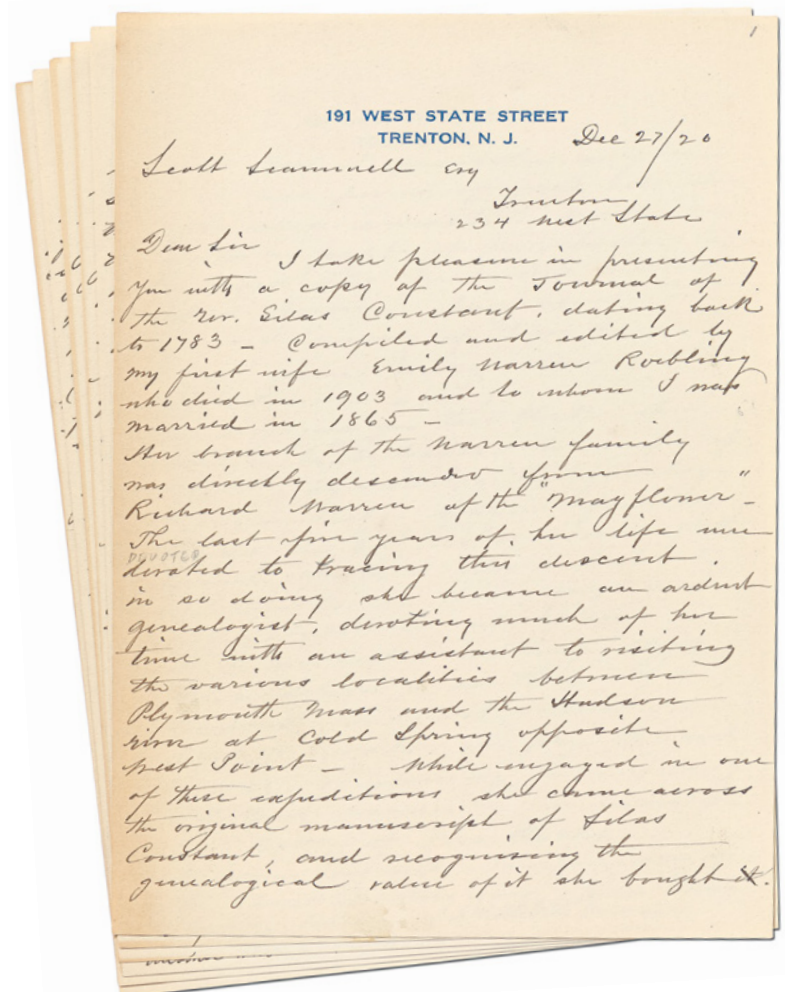 1
191 WEST STATE STREET
TRENTON, N. J.
Dec 27/20
Scott Scammell Esq
Trenton
234 West State
Dear Sir
I take pleasure in presenting
you with a copy of the Journal of
the Rev. Silas Constant, dating back
to 1783 – Compiled and edited by
my first wife Emily Warren Roebling
who died in 1903 and to whom I was
married in 1865 –
Her branch of the Warren family
was directly descended from
Richard Warren of the "Mayflower" –
The last five years of her life were
DEVOTED
devoted to tracing this descent.
in so doing she became an ardent
genealogist, devoting much of her
time with an assistant to visiting
the various localities between
Plymouth Mass and the Hudson
river at Cold Spring opposite
West Point – While engaged in one
of these expeditions she came across
the original manuscript of Silas
Constant, and recognising the
genealogical value of it she bought it.